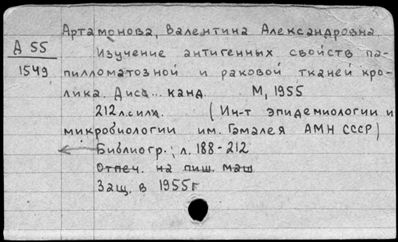 Артамонова, Валентина Александровна
А 55
1549
Изучение антигенных свойств па-
пилломатозной и раковой тканей кро-
лика. Дисс... канд. М, 1955
212л.илл. (Ин-т эпидемиологии и
микробиологии им. Гамалея АМН СССР)
Библиогр.: л. 188-212
Отпеч. на пиш. маш
Защ. в 1955г